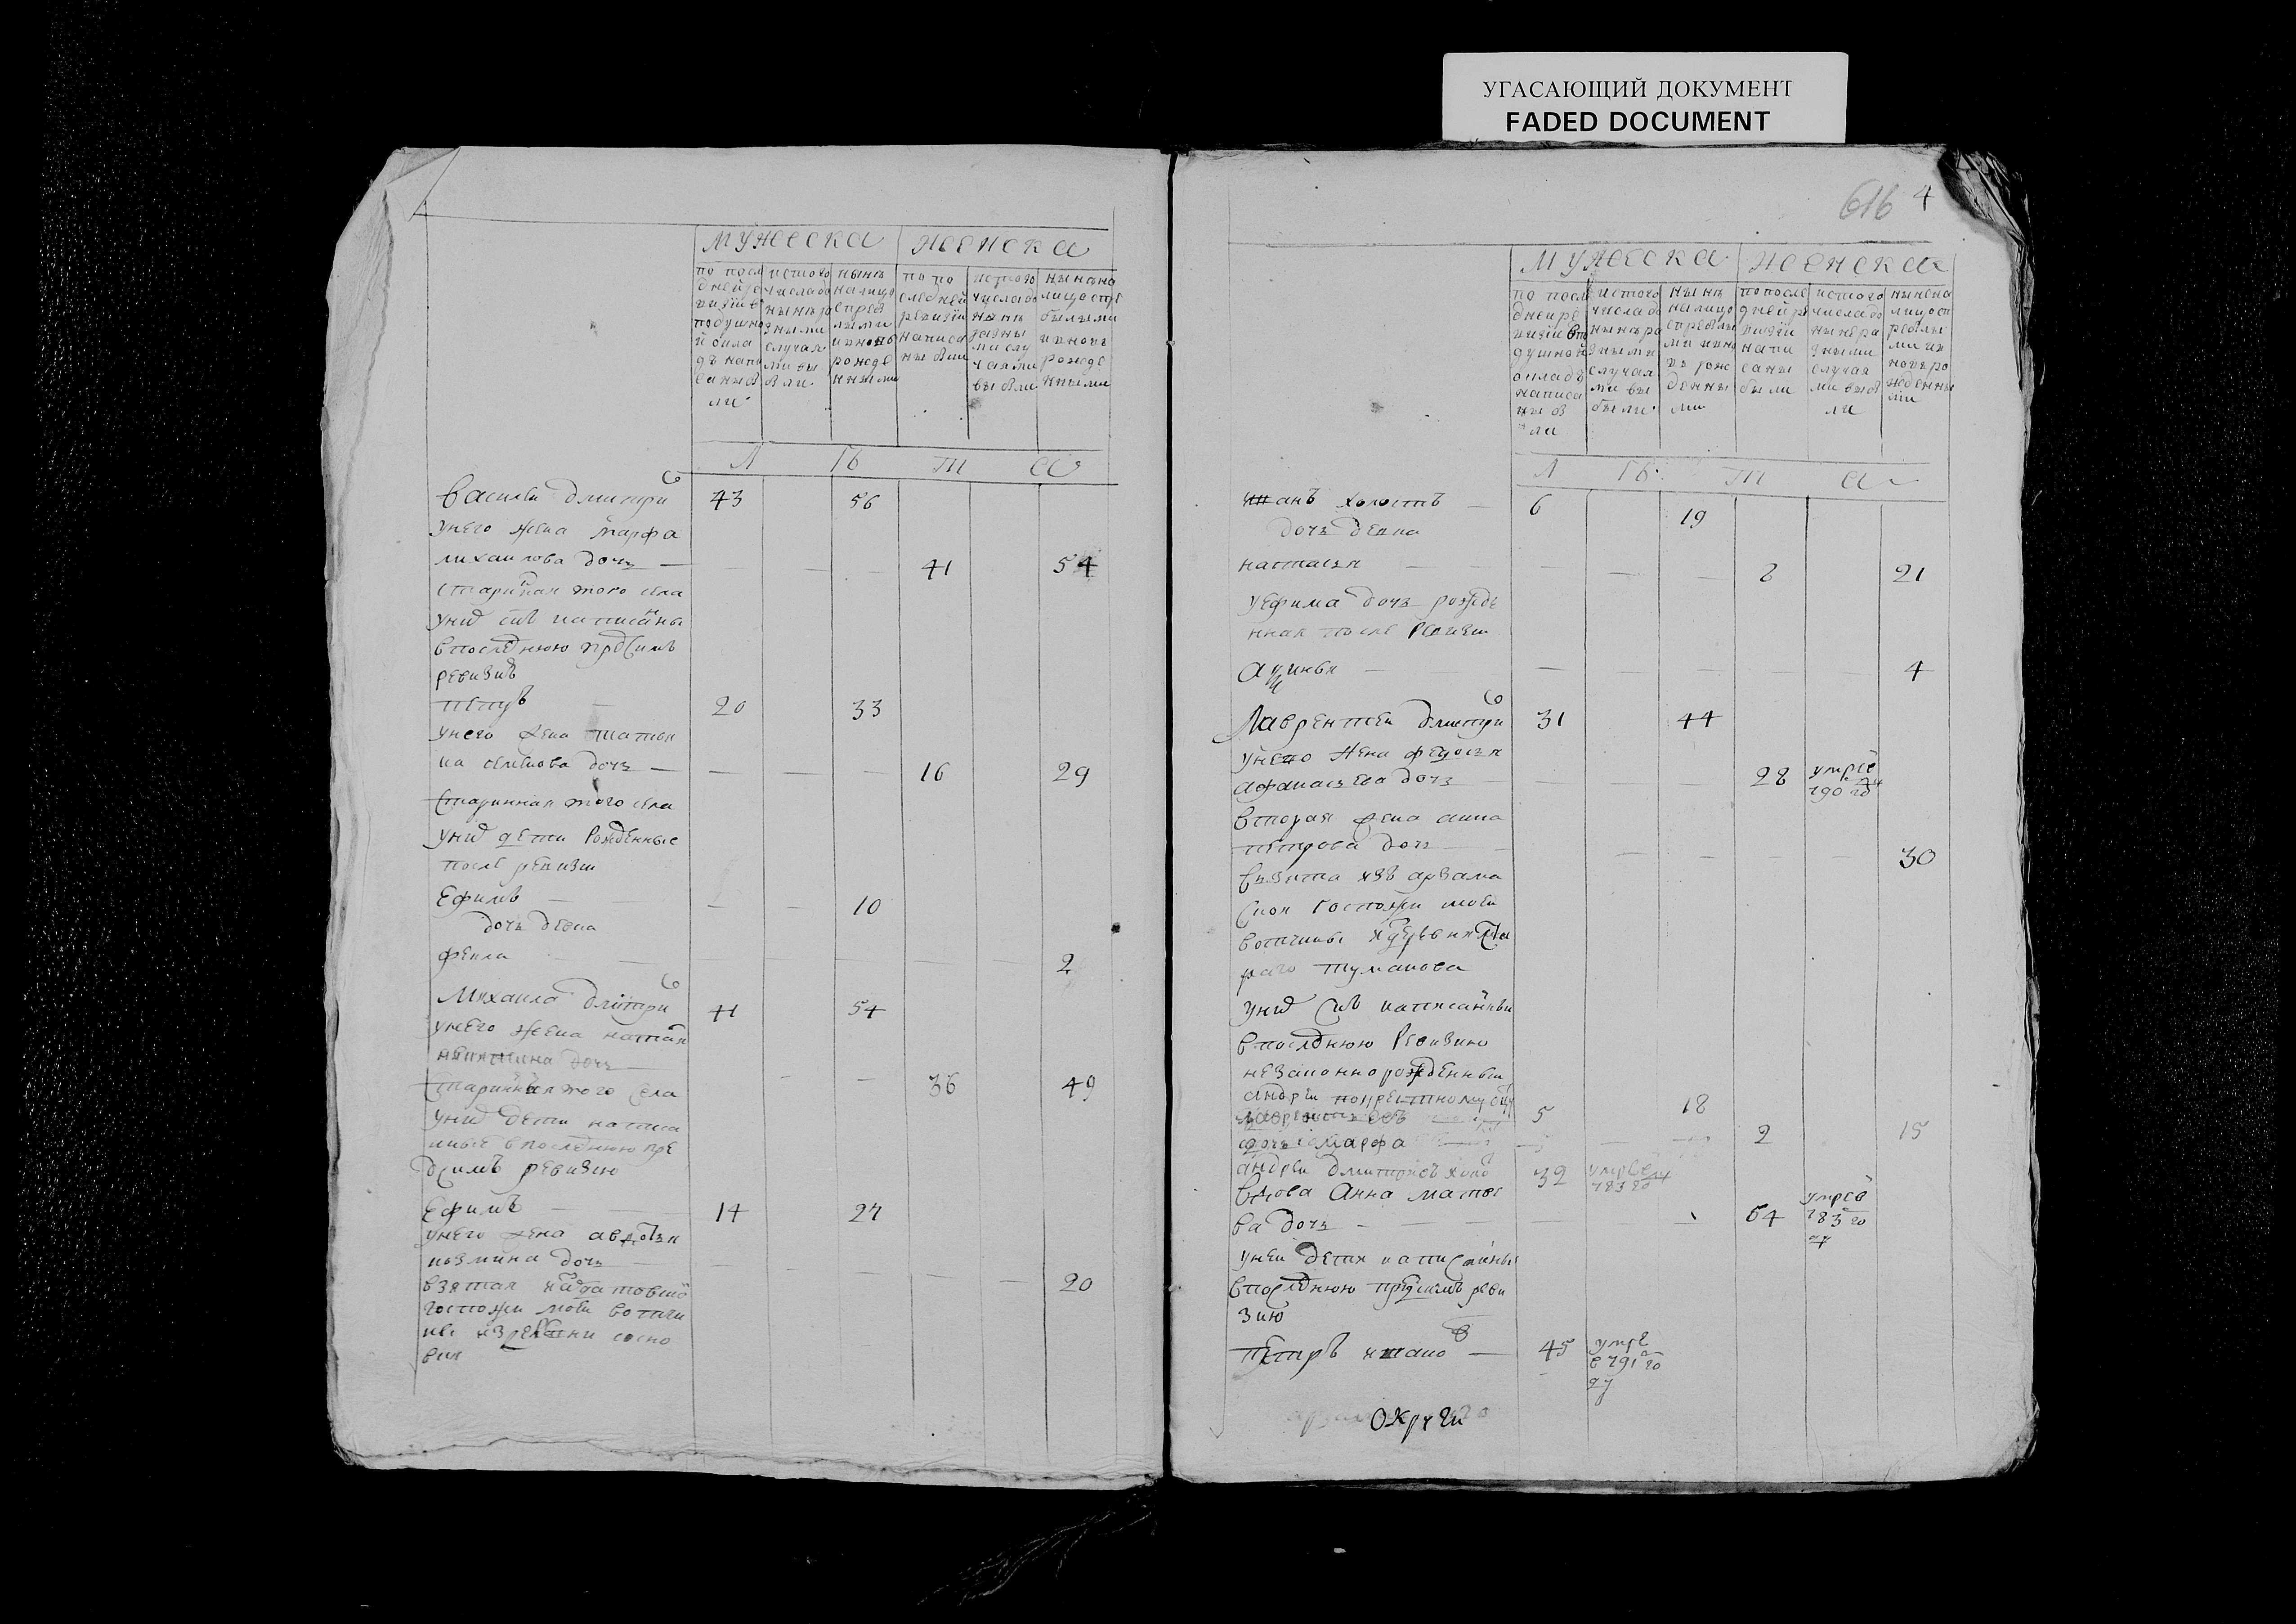 УГАСАЮЩИЙ ДОКУМЕНТ
FADED DOCUMENT
мужеска женска
по посл
дней ре
визiи в
подушно
й окла
дъ напи
саны бы
ли
ис того
числа до
нынѣ ра
зными
случая
ми вы
были
нынѣ
на лицо
с прибы
лыми
и вновь
рожде
нными
по по
следней
ревизiи
написа
ны были
ис того
числа до
нынѣ
разны
ми слу
чаями
выбыли
нынѣ на
лицо с при
былыми
и вновь
рожде
нными
Л ѣ т а
василей дмитриев 43 56
у него жена марфа
михаилова дочь — 41 54
старинная того села
у них сынъ написанный
в последнюю пред симъ
ревизию
петръ 20 33
у него жена татья
на семенова дочь — 16 29
старинная того села
у них дети рожденные
после ревизии
Ефимъ 10
дочь девка
фекла 2
Михаила дмитриев 41 54
у него жена наталья
никитина дочь
старинная того села 36 49
у них дети написа
нные в последнюю пре
д симъ ревизию
Ефимъ 14 27
у него жена авдотья
козмина дочь
взятая 20
госпожи моей вотчи
ны из деревни сосно
вки
616 4
мужеска женска
по посл
дней ре
визiи в по
душной
окладъ
написа
ны бы
ли
ис того
числа до
нынѣ ра
зными
случая
ми вы
были
нынѣ
на лицо
с прибылы
ми и вно
вь рож
денны
ми
по после
дней ре
визiи
напи
саны
были
ис того
числа до
нынѣ ра
зными
случая
ми выбы
ли
нынѣ на
лицо с п
рибылы
ми и в
новь ро
жденны
ми
Л ѣ т а
иванъ холостъ — 6 19
дочь девка
настасья 8 21
у Ефима дочь рожде
нная после ревизии
Аксинья 4
Лаврентей дмитриев 31 44
у него жена федосья
афанасьева дочь 28 умре в 790 году
вторая жена анна
петрова дочь 30
взята изъ арзама
ской госпожи моей
вотчины из деревни Ста
раго туманова
у них сынъ написанный
в последнюю Ревизию
незаконнорожденный
андрей по крестному отцу
лаврентьевъ 5 18
дочь Марфа 2 15
андрей дмитриевъ холо 32 умре в 783 году
вдова Анна матве
ва дочь 64 умре в 783 году
у ней дети написанные
в последнюю пред симъ реви
зию
Петръ иванов — 45 умре в 791 году
округи